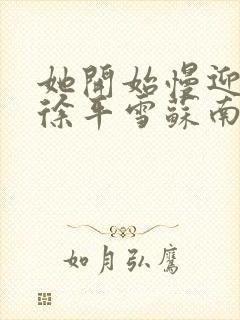 她開始慢迎
徐平雪蘇南
如月弘鷹